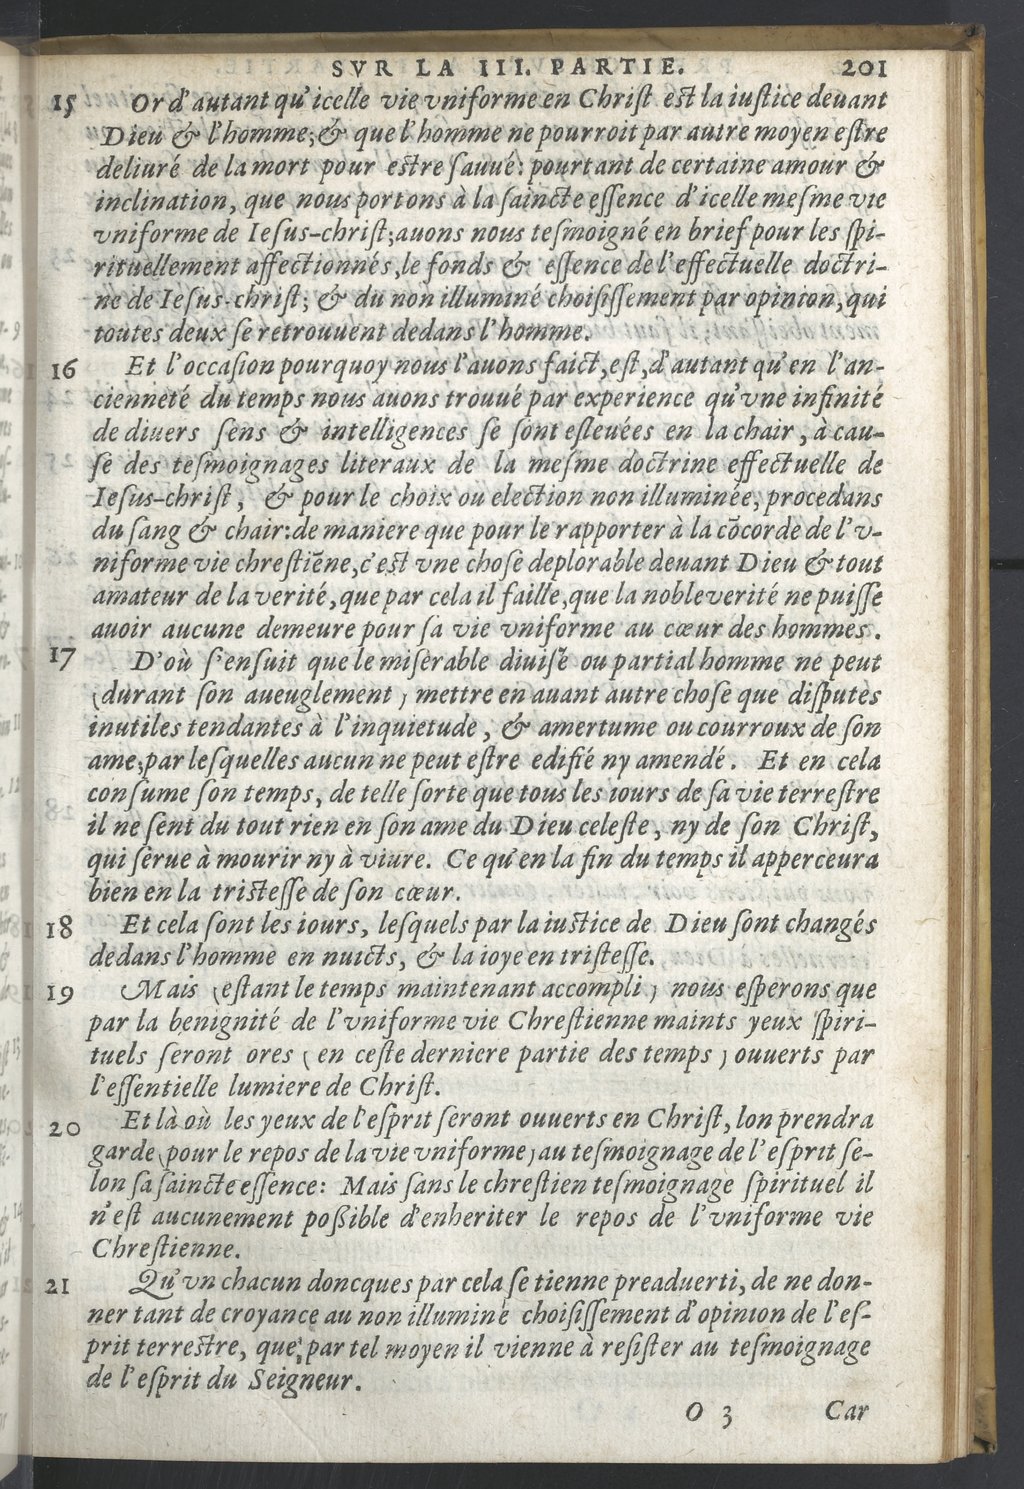 SVR LA III. PARTIE. 201
15 Or d'autant qu'icelle vie vniforme en Chriſt eſt la iuſtice deuant
Dieu & l'homme; & que l'homme ne pourroit par autre moyen eſtre
deliuré de la mort pour eſtre ſauué: pourtant de certaine amour &
inclination, que nous portons à la ſaincte eſſence d'icelle meſme vie
vniforme de Ieſus-chriſt; auons nous teſmoigné en brief pour les ſpi-
rituellement affectionnés, le fonds & eſſence de l'effectuelle doctri-
ne de Ieſus-chriſt; & du non illuminé choiſiſſement par opinion, qui
toutes deux ſe retrouuent dedans l'homme.
16 Et l'occaſion pourquoy nous l'auons faict, eſt, d'autant qu'en l'an-
cienneté du temps nous auons trouué par experience qu'vne infinité
de diuers ſens & intelligences ſe ſont eſleuées en la chair, à cau-
ſe des teſmoignages literaux de la meſme doctrine effectuelle de
Ieſus-chriſt, & pour le choix ou election non illuminée, procedans
du ſang & chair: de maniere que pour le rapporter à la cõcorde de l'v-
niforme vie chreſtiēne, c'eſt vne choſe deplorable deuant Dieu & tout
amateur de la verité, que par cela il faille, que la noble verité ne puiſſe
auoir aucune demeure pour ſa vie vniforme au cœur des hommes.
17 D'où s'enſuit que le miſerable diuiſé ou partial homme ne peut
(durant ſon aueuglement) mettre en auant autre choſe que diſputes
inutiles tendantes à l'inquietude, & amertume ou courroux de ſon
ame, par leſquelles aucun ne peut eſtre edifié ny amendé. Et en cela
conſume ſon temps, de telle ſorte que tous les iours de ſa vie terreſtre
il ne ſent du tout rien en ſon ame du Dieu celeſte, ny de ſon Chriſt,
qui ſerue à mourir ny à viure. Ce qu'en la fin du temps il apperceura
bien en la triſteſſe de ſon cœur.
18 Et cela ſont les iours, leſquels par la iuſtice de Dieu ſont changés
dedans l'homme en nuicts, & la ioye en triſteſſe.
19 Mais (eſtant le temps maintenant accompli) nous eſperons que
par la benignité de l'vniforme vie Chreſtienne maints yeux ſpiri-
tuels ſeront ores (en ceſte derniere partie des temps) ouuerts par
l'eſſentielle lumiere de Chriſt.
20 Et là où les yeux de l'eſprit ſeront ouuerts en Chriſt, lon prendra
garde (pour le repos de la vie vniforme) au teſmoignage de l'eſprit ſe-
lon ſa ſaincte eſſence: Mais ſans le chreſtien teſmoignage ſpirituel il
n'eſt aucunement poßible d'enheriter le repos de l'vniforme vie
Chreſtienne.
21 Qu'vn chacun doncques par cela ſe tienne preaduerti, de ne don-
ner tant de croyance au non illuminé choiſiſſement d'opinion de l'eſ-
prit terreſtre, que, par tel moyen il vienne à reſiſter au teſmoignage
de l'eſprit du Seigneur.
O 3 Car